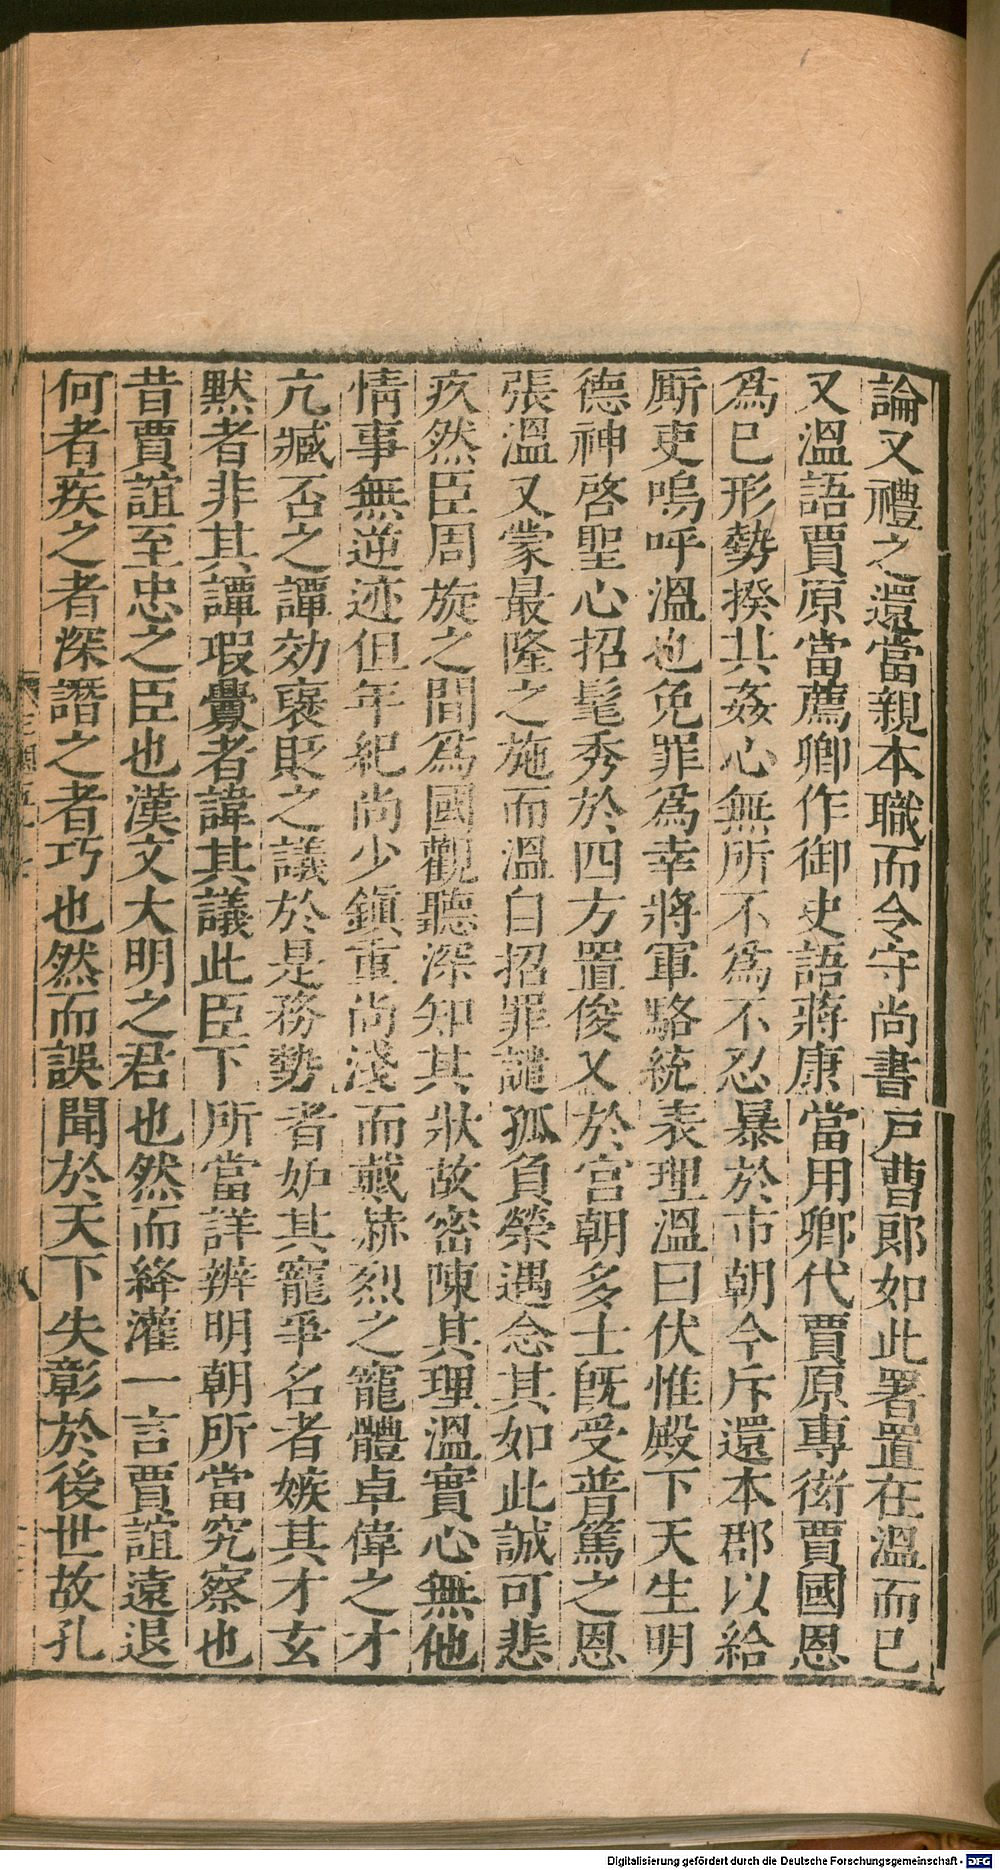 論又禮之還當親本職而令守尚書戸曹郎如此署置在溫而已
又溫語賈原當薦卿作御史語蔣康當用卿代賈原專衒賈國恩
爲已形勢揆其姦心無所不爲不忍暴於市朝今斥還本郡以給
厮吏嗚呼溫也免罪爲幸將軍駱統表理溫曰伏惟殿下天生明
德神啓聖心招髦秀於四方置俊乂於宫朝多士旣受普篤之恩
張溫又蒙最隆之施而溫自招罪譴孤負榮遇念其如此誠可悲
疚然臣周旋之間爲國觀聽深知其狀故密陳其理溫實心無他
情事無逆迹但年紀尚少鎮重尚淺而戴赫烈之寵體卓偉之才
亢臧否之譚効襃貶之議於是務勢者妒其寵爭名者嫉其才玄
默者非其譚瑕釁者諱其議此臣下所當詳辨明朝所當究察也
昔賈誼至忠之臣也漢文大明之君也然而絳灌一言賈誼遠退
何者疾之者深譖之者巧也然而誤聞於天下失彰於後世故孔
Digitalisierung gefördert durch die Deutsche Forschungsgemeinschaft - DFG